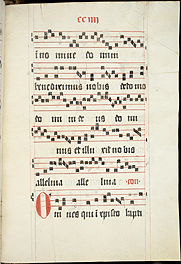 cc iiii
i no mine do mini
benedicimus vobis de do mo
do mi ni de us do mi
nus et illu xit no bis
alleluia alle luia
O m nes qui i xpisto bapti